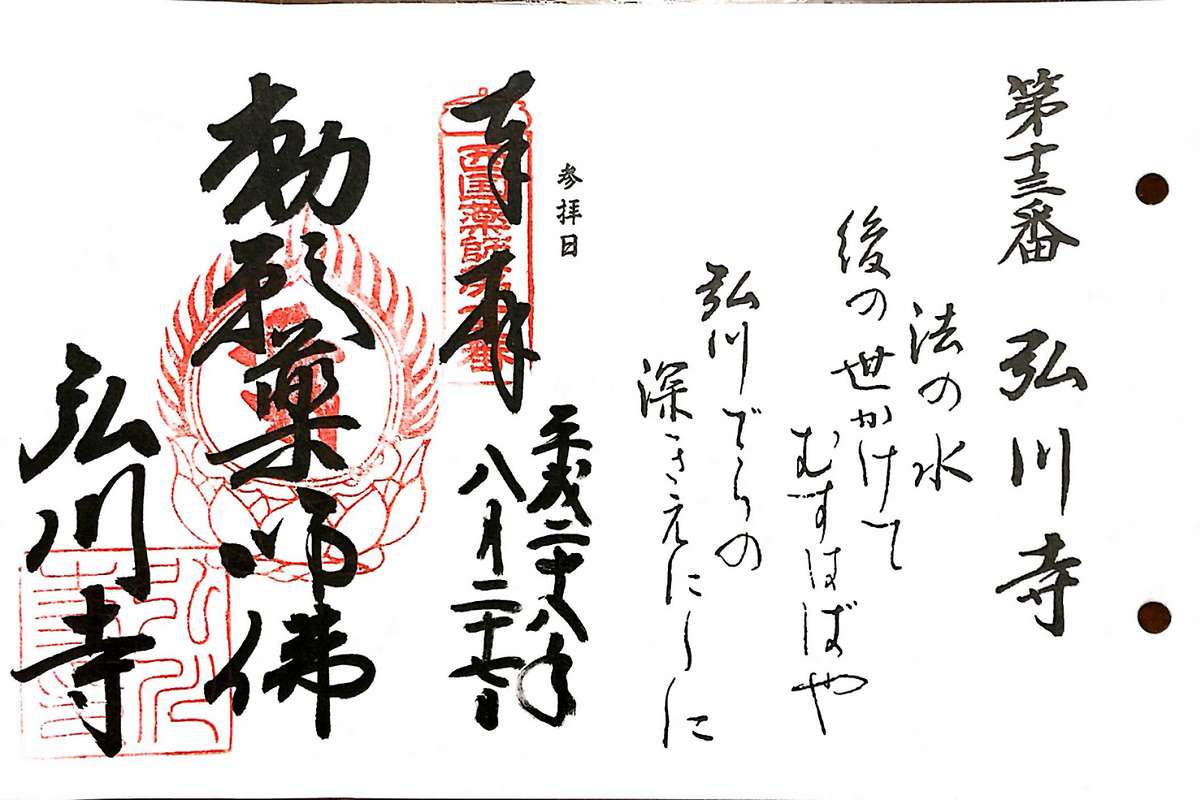 第十三番 弘川寺
法の水
後の世かけて
むすはばや
弘川でらの
深きえにしに
参拝日
平成二十八年
八月二十七日
奉拝
西国薬師
勅願薬師佛
弘川寺